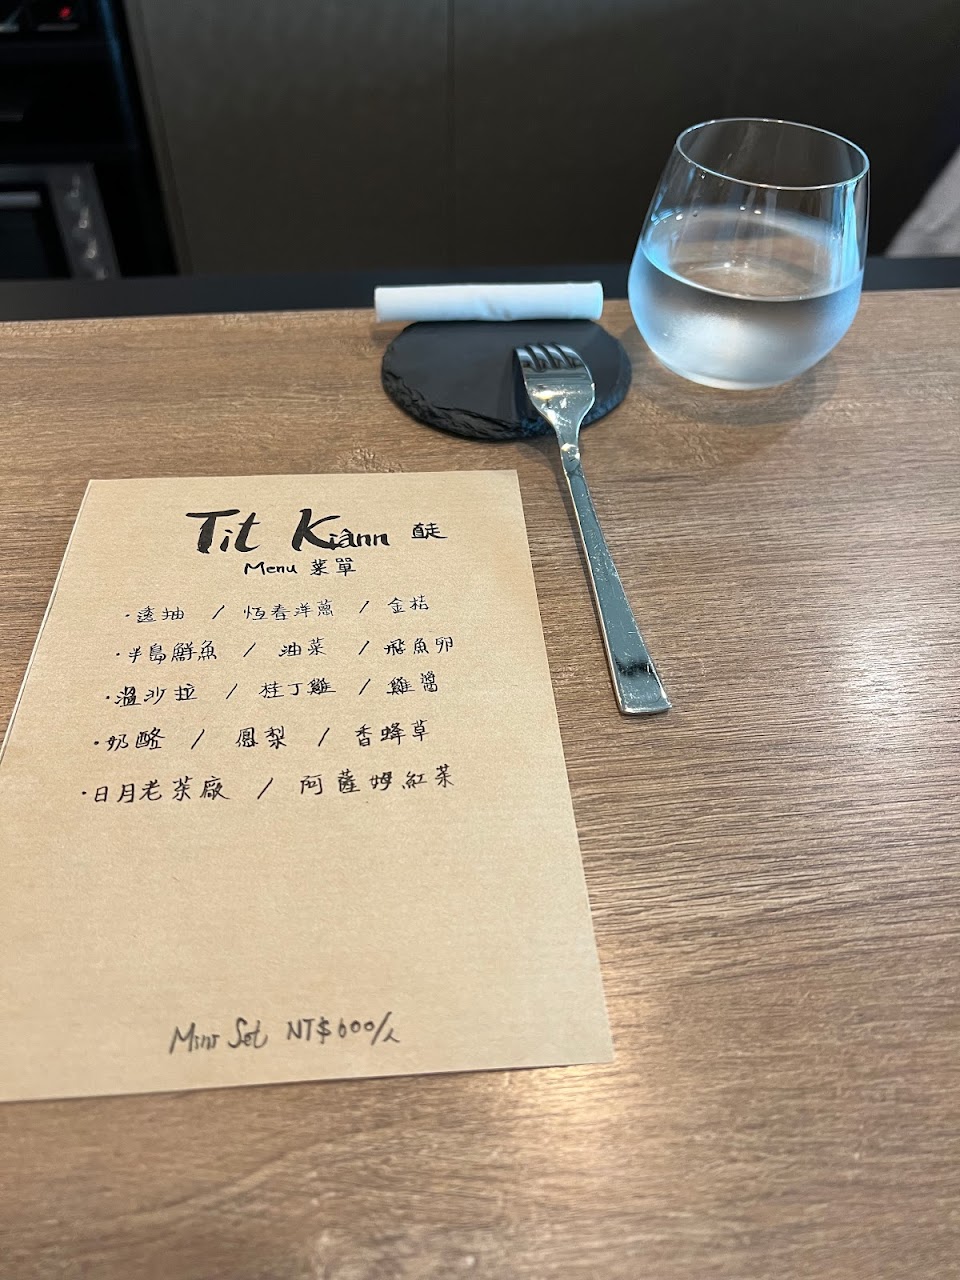 Tit Kiânn 直走
Menu 菜單
·透抽 / 恆春洋蔥 / 金桔
·半島鮮魚 / 油菜 / 飛魚卵
·溫沙拉 / 桂丁雞 / 雞醬
·奶酪 / 鳳梨 / 香蜂草
·日月老茶廠 / 阿薩姆紅茶
Mini Set NT$600/人